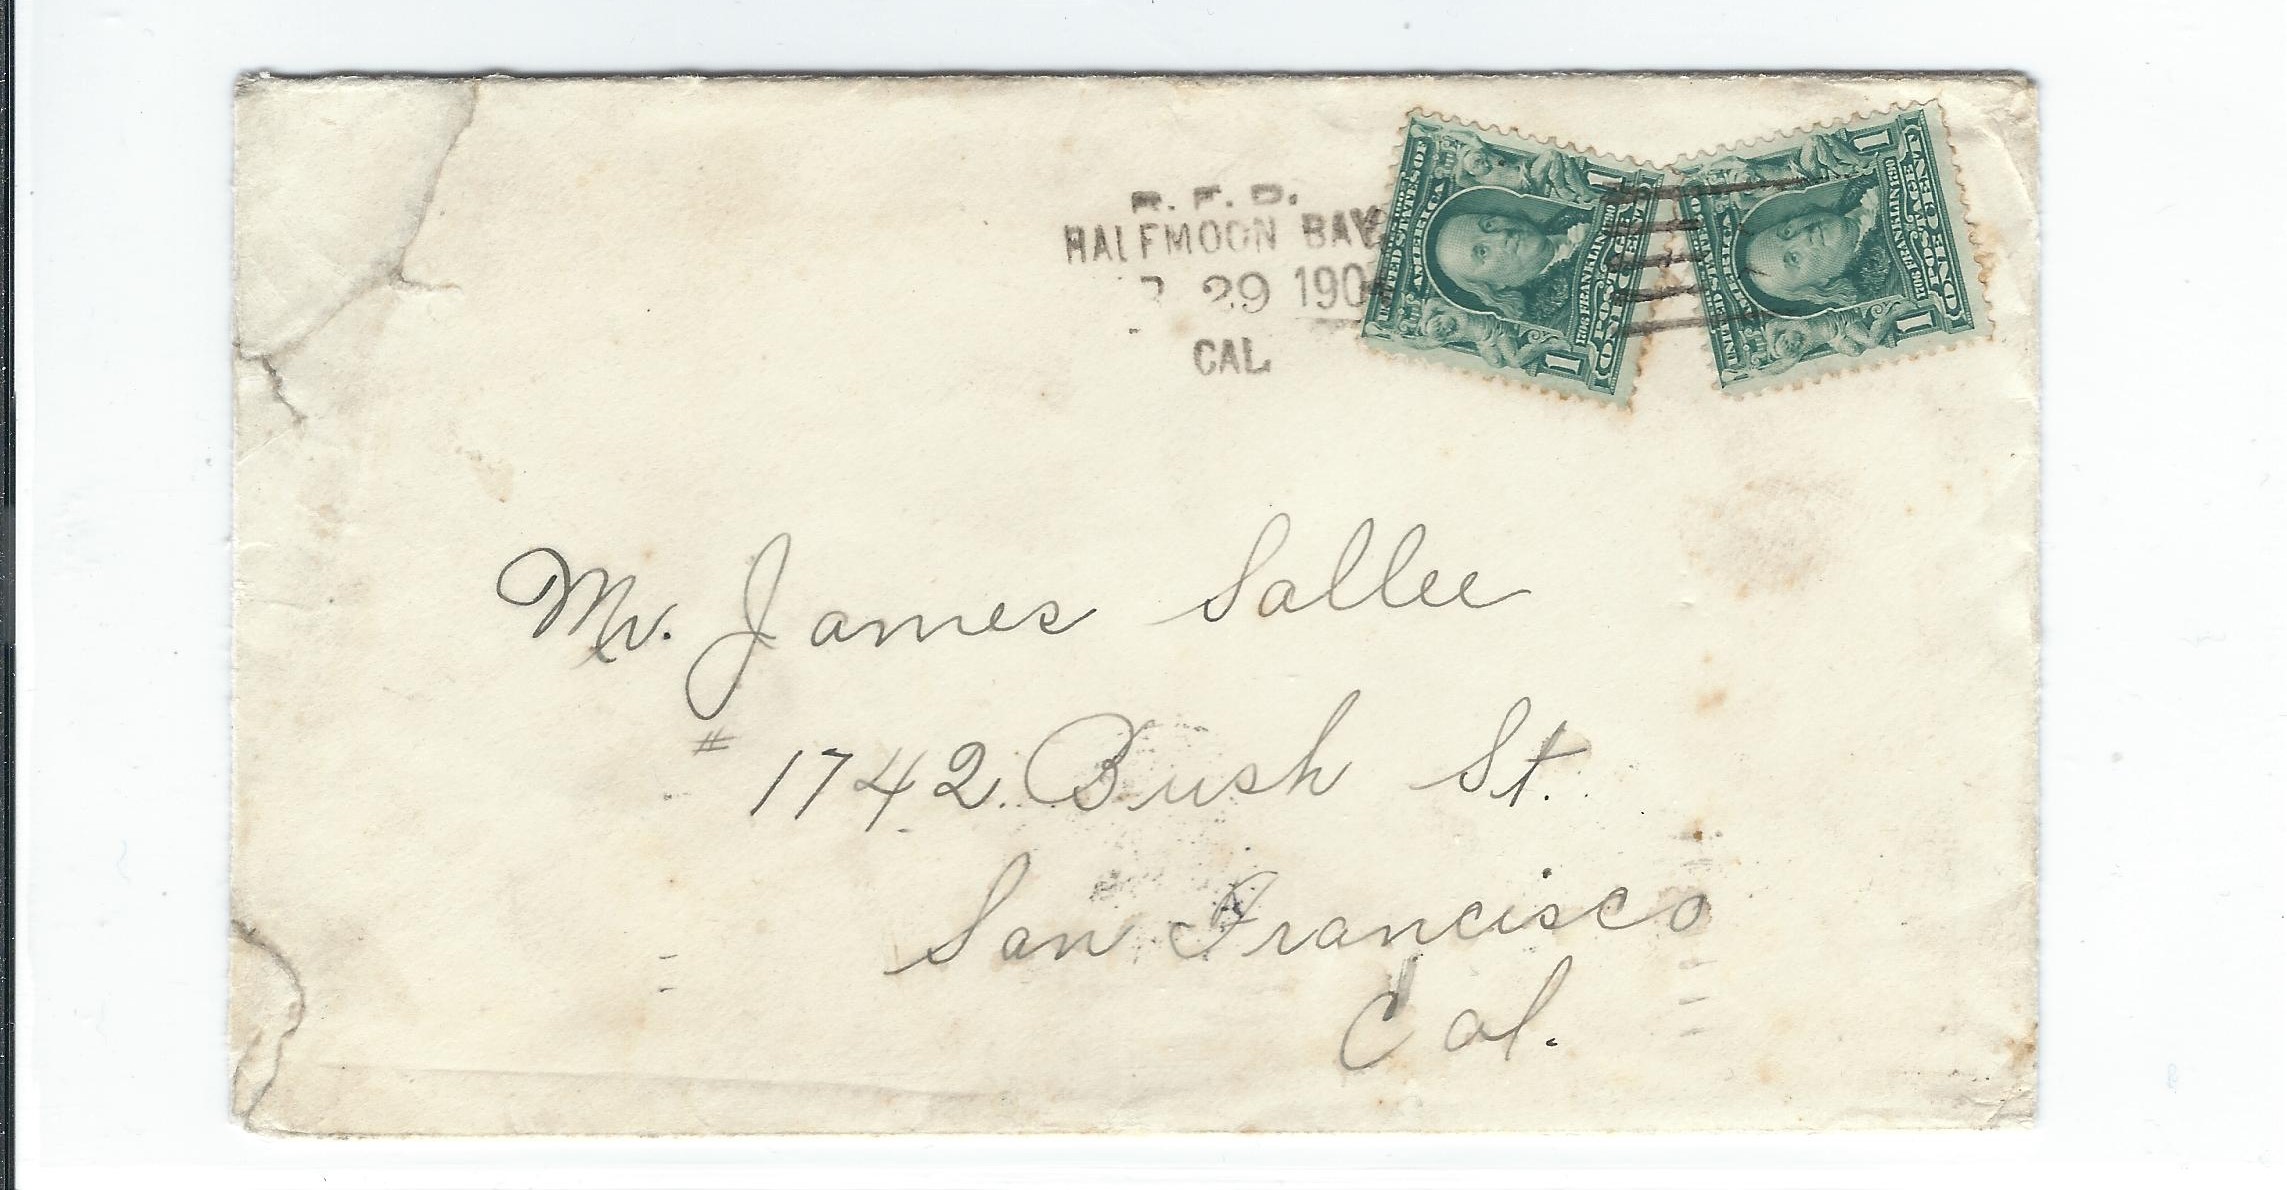 R. F. D.
HALFMOON BAY
29 190
CAL
UNITED STATES OF
AMERICA
1706 FRANKLIN 1790
POSTAGE
ONE CENT
1 1
UNITED STATES OF
AMERICA
1706 FRANKLIN 1790
POSTAGE
ONE CENT
1 1
Mr. James Sallee
# 1742 Bush St.
San Francisco
Cal.